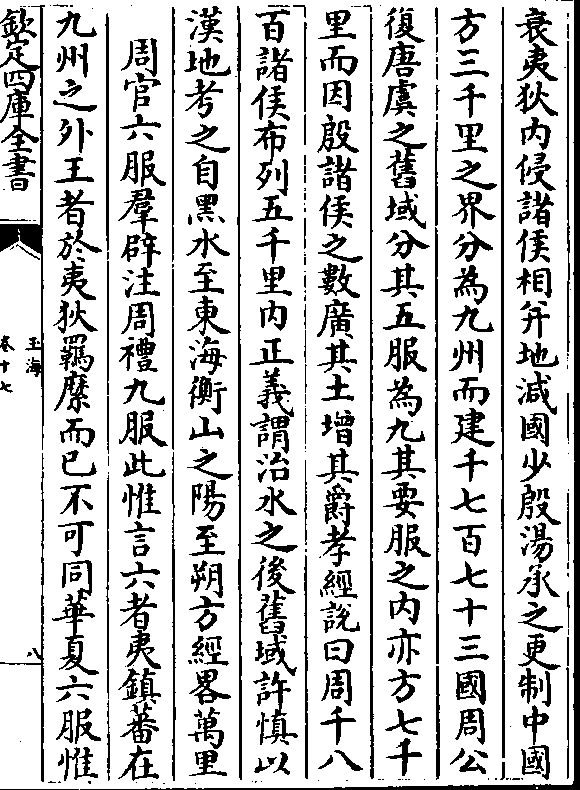 衰夷狄内侵諸侯相并地減國少殷湯承之更制中國
方三千里之界分為九州而建千七百七十三國周公
復唐虞之舊域分其五服為九其要服之内亦方七千
里而因殷諸侯之數廣其土增其爵孝經說曰周千八
百諸侯布列五千里内正義謂治水之後舊域許慎以
漢地考之自黑水至東海衡山之陽至朔方經畧萬里
周官六服羣辟注周禮九服此惟言六者夷鎮蕃在
九州之外王者於夷狄羈縻而已不可同華夏六服惟
欽定四庫全書
玉海
卷十七
八